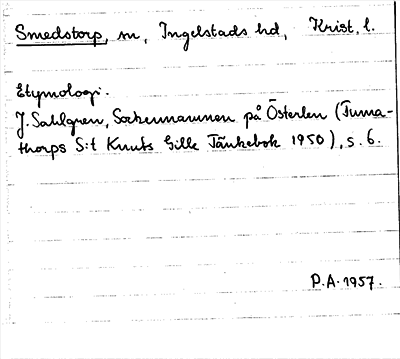 Smedstorp, sn, Ingelstads hd, Krist. l.
Etymologi.
J. Sahlgren, Sockennamnen på Österlen (Tuma-
thorps S:t Knuts Gille Tänkebok 1950), s. 6.
P.A. 1957.